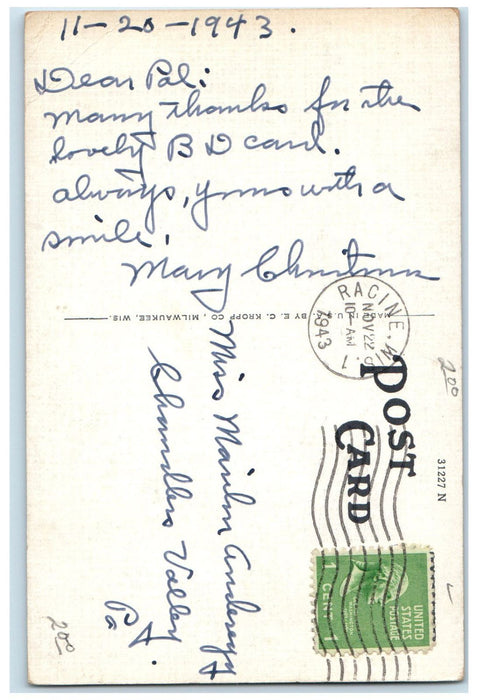 11-20-1943.
Dear Pal:
Many thanks for the
lovely B D card.
always, yours with a
smile.
Mary Christman
MADE IN U.S.A. BY E. C. KROPP CO., MILWAUKEE, WIS.
RACINE, WIS.
NOV 22
10-AM
1943
POST
CARD
31227 N
Miss Marilyn
Chandlers Valley
Pa.
UNITED
STATES
POSTAGE
WASHINGTON
1 CENT 1
2.00
2.00